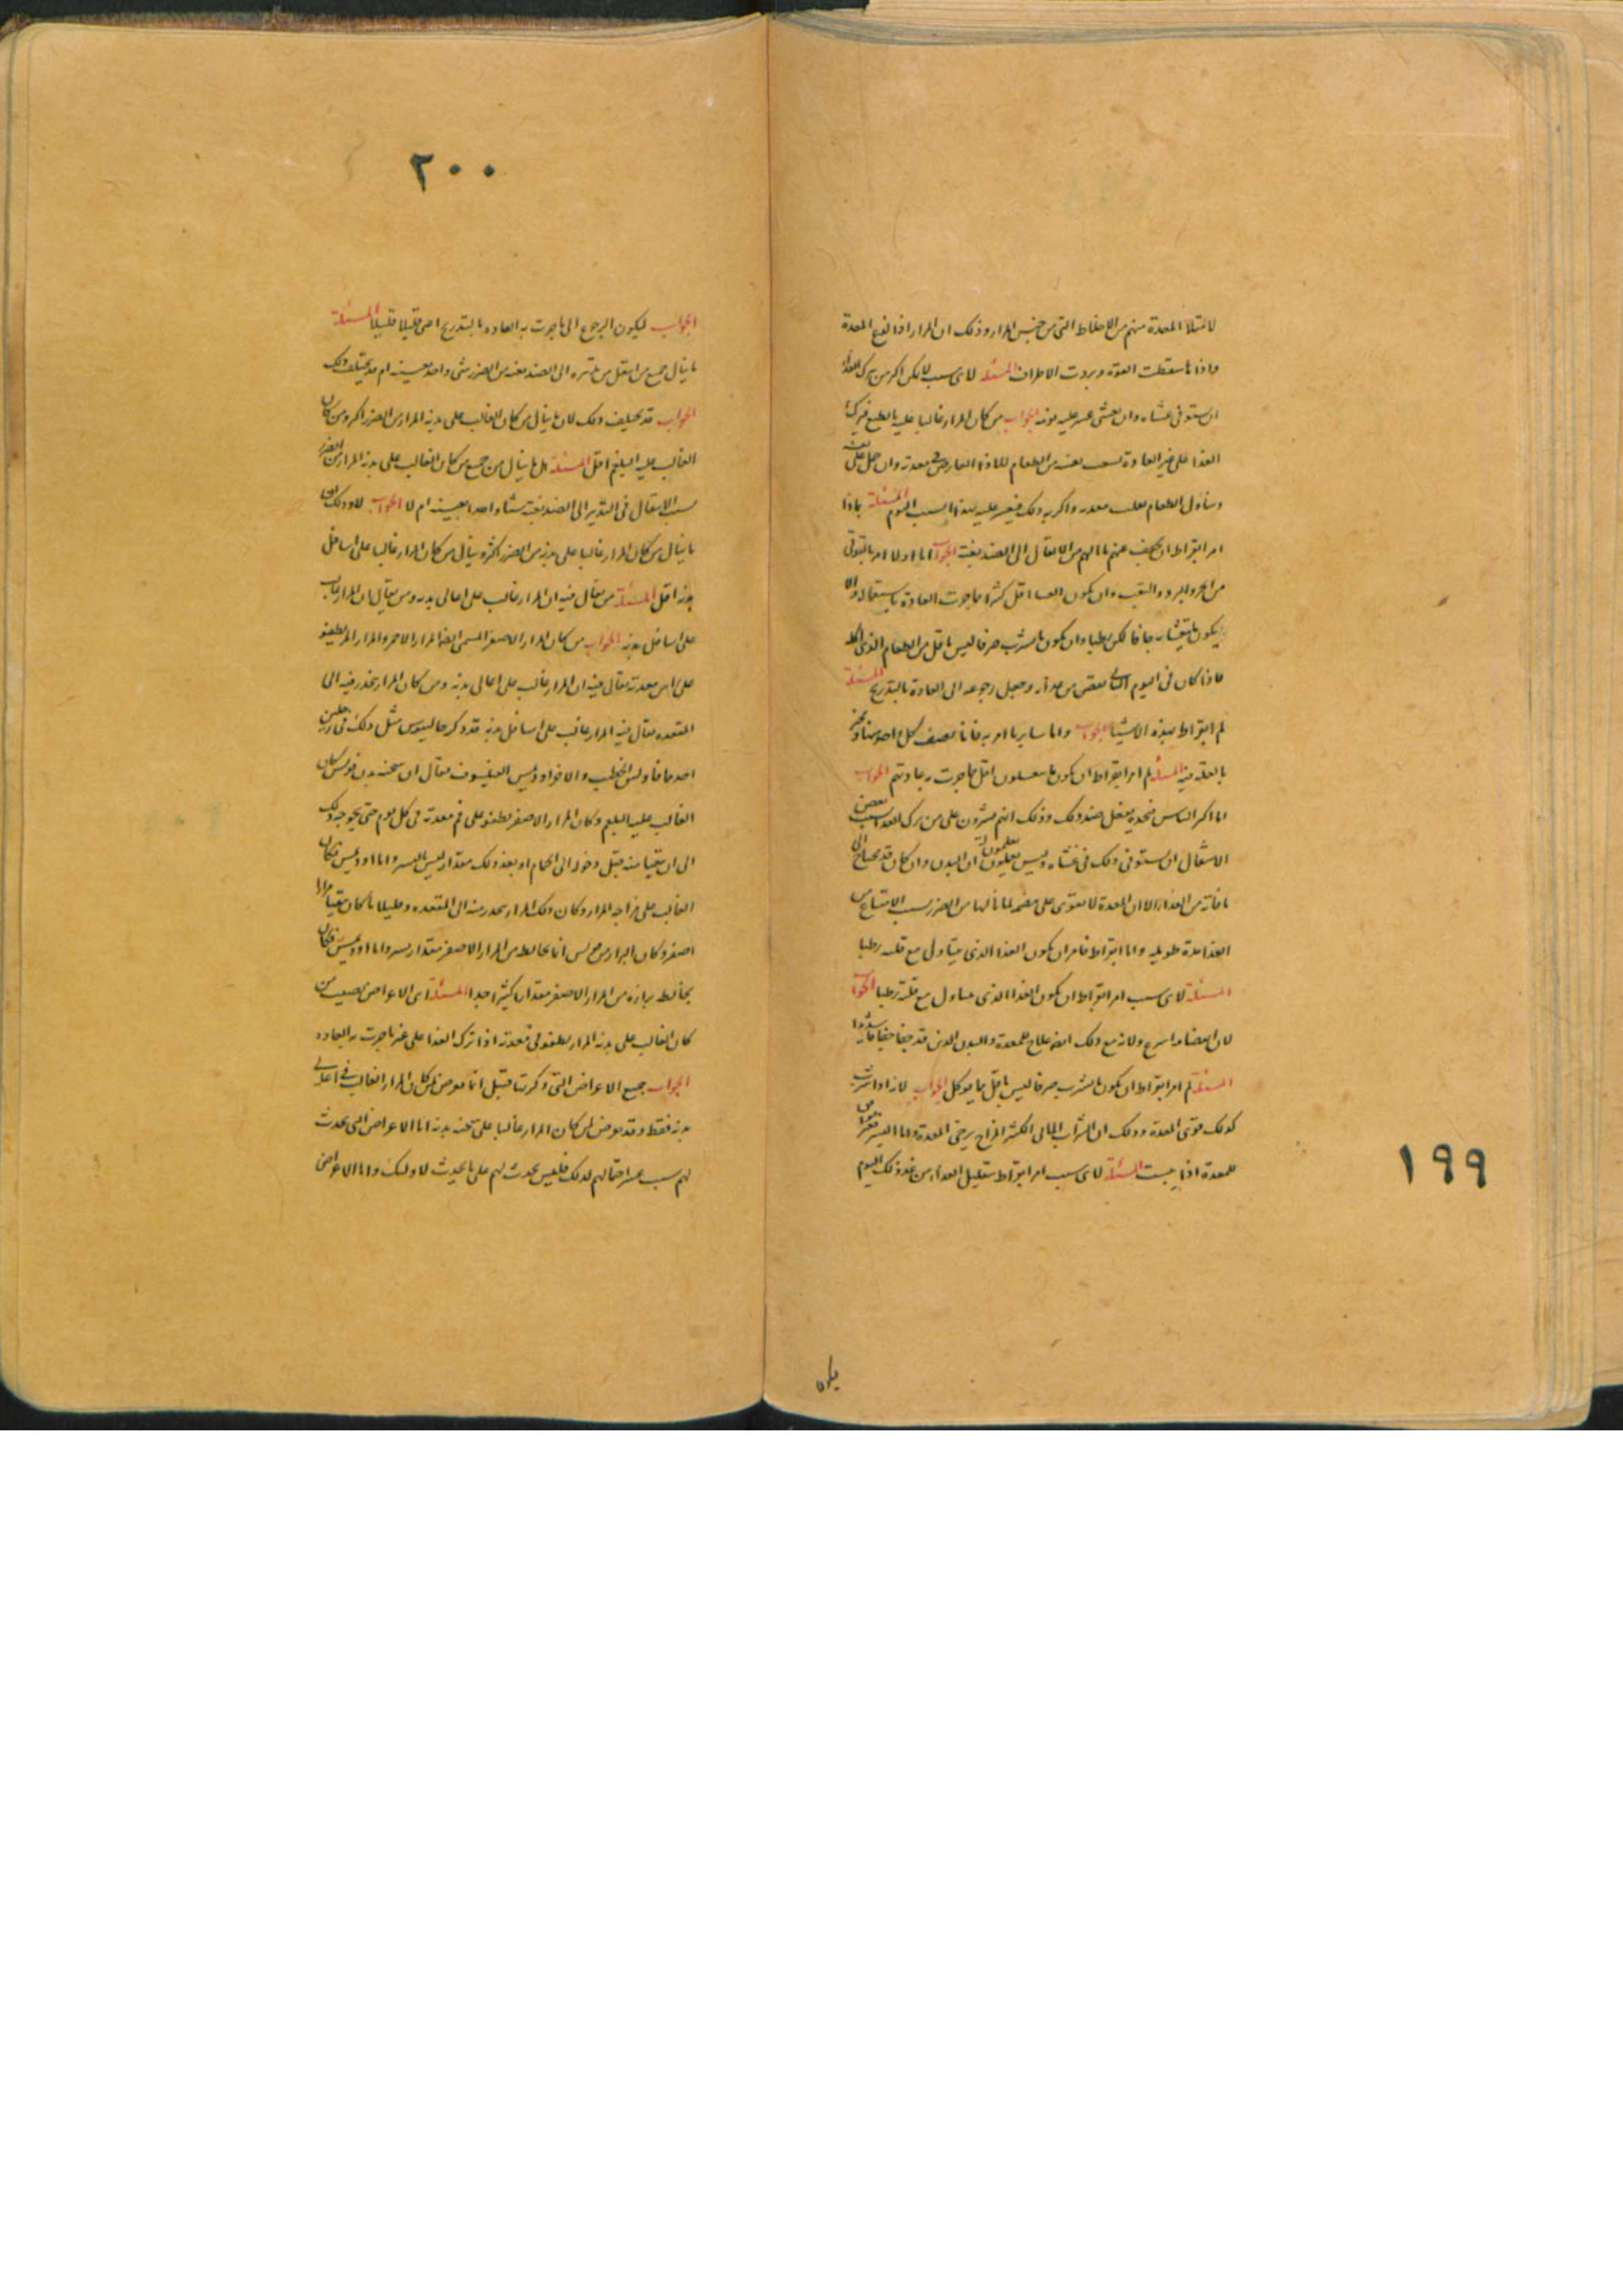 لامتلا المعدة منهم من الاخلاط التى من جنس المرار وذلك ان المرار اذا لذع المعدة
واذا ما سقطت القوة وبردت الاطراف المسئلة لاى سبب لا يمكن اكثر من ترك الغذا
ان يستوفى عشاه وان تعشى عسر عليه نومه الجواب من كان المرار غالبا عليه بالطبع فترك
الغذا على غير العادة بغته من الطعام العارض فى معدته وان حمل على
وتناول الطعام معدته واكربه ذلك فيعسر عليه بهذا السبب النوم المسئلة بماذا
امر ابقراط ان يخفف عنهم ما نالهم من الانتقال الى الضد بغتة الجواب اما اولا امر بالتوقى
من الحر والبرد والتعب وان يكون العشا اقل كثيرا مما جرت العادة باستعماله والا
يكون ما يتعشا به جافا لكن رطبا وان يكون ما يشرب صرفا ليس باقل من الطعام الذى اكله
فاذا كان فى اليوم الثانى نقص من غدائه وجعل رجوعه الى العادة بالتدريج المسئلة
لم امر ابقراط بهذه الاشيا الجواب واما ساير ما امر به فانا نصف كل واحد منها ونخبر
بالعلة فيه المسئلة لم امر ابقراط ان يكون ما يتعشون اقل مما جرت به عادتهم الجواب
اما اكثر الناس فنجده يفعل ضد ذلك وذلك انهم يشيرون على من ترك الغدا بسبب بعض
الاشغال ان يستوفى ذلك فى عشاه وليس يعلمون ان البدن وان كان قد يحتاج الى
ما فاته من الغذا الا ان المعدة لا تقوى على هضمه لما نالها من الضرر بسبب الامتناع من
الغذا مدة طويلة واما ابقراط فامر ان يكون الغذا الذى يتناول مع قلته رطبا
المسئلة لاى سبب امر ابقراط ان يكون الغذا الذى يتناول مع قلته رطبا الجواب
لان انهضامه اسرع ولانه مع ذلك ايضا علاج للمعدة والبدن الذين قد جفا جفافا شديدا
المسئلة لم امر ابقراط ان يكون ما يشرب صرفا ليس باقل مما يوكل الجواب لانه اذا شرب
كذلك قوى المعدة وذلك ان الشراب المائى الكثير المزاج يرخى المعدة واما اليسير
للمعدة اذا يبست المسئلة لاى سبب امر ابقراط بتقليل الغدا من غد ذلك اليوم
١٩٩
٢٠٠
الجواب ليكون الرجوع الى ما جرت به العادة بالتدريج اعنى قليلا قليلا المسئلة
ما ينال جميع من انتقل من تدبيره الى الضد بغته من الضرر شى واحد بعينه ام قد يختلف ذلك
الجواب قد يختلف ذلك لان ما ينال من كان الغالب على بدنه المرار من الضرر اكثر ومن كان
الغالب عليه البلغم اقل المسئلة هل ما ينال من جميع من كان الغالب على بدنه المرار من الضرر
بسبب الانتقال فى التدبير الى الضد بغتة شيئا واحدا بعينه ام لا الجواب لا وذلك ان
ما ينال من كان المرار غالبا على بدنه من الضرر اكثر وينال من كان المرار غالبا على اسافل
بدنه اقل المسئلة من يقال فيه ان المرار غالب على اعالى بدنه ومن يقال ان المرار غالب
على اسافل بدنه الجواب من كان المرار الاصفر المسمى ايضا المرار الاحمر والمرار المر يطفو
على راس معدته يقال فيه ان المرار غالب على اعالى بدنه ومن كان المرار ينحدر فيه الى
المقعدة يقال فيه المرار غالب على اسافل بدنه قد ذكر جالينوس مثل ذلك فى رجلين
احدهما الخطيب والاخر اوديمس الفيلسوف فقال ان سحنة بدن كان
الغالب عليه البلغم وكان المرار الاصفر يطفو على فم معدته فى كل يوم حتى يحوجه ذلك
الى ان يتقيا منه قبل دخوله الى الحمام او بعد ذلك مقدار ليس اليسير واما اوديمس فكان
الغالب على مزاجه المرار وكان ذلك المرار ينحدر منه الى المقعدة وقليلا ما كان يتقيا مرارا
اصفر وكان البراز من انما يخالطه من المرار الاصفر مقدار يسير واما اوديمس فكان
يخالط برازه من المرار الاصفر مقدارا كثيرا جدا المسئلة اى الاعراض تصيب من
كان الغالب على بدنه المرار يطفو فى معدته اذا ترك الغذا على غير ما جرت به العادة
الجواب جميع الاعراض التى ذكرت قبل انما تعرض لمن كان المرار الغالب فى اعالى
بدنه فقط وقد تعرض لمن كان المرار غالبا على سحنة بدنه اما الاعراض التى تحدث
لهم بسبب عسر احتمالهم لذلك فليس تحدث لهم على ما يحدث لاولئك واما الاعراض